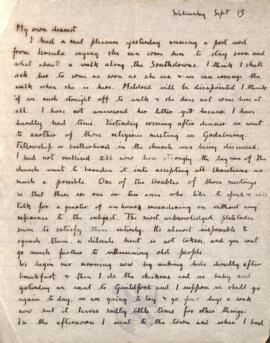 Wednesday Sept 19
My own dearest
I had a real pleasure yesterday receiving a post card
from Ursula saying she can come here to stay soon and
what about a walk along the Southdowns. I think I shall
ask her to come as soon as she can & we can arrange the
walk when she is here. Mildred will be disappointed I think
if we walk straight off to walk & she does not come here at
all. I have not answered her letter yet because I have
hardly had time. Yesterday evening after dinner we went
to another of those religious meeting in Godalming.
Fellowship or brotherhood in the church was being discussed.
I had not realized till now how strongly the laymen of the
church want to broaden it into accepting all Christians as
much as possible. One of the troubles of those meetings
is that there are one or two men who like to speak & will
talk for a quarter of an hour meandering on without any
reference to the subject. The most acknowledged platitudes
seem to satisfy them entirely. Its almost impossible to
squash them, a delicate hint is not taken and you cant
go much further to well meaning old people.
We begin our morning now by making beds directly after
breakfast & then I do the chickens and we baby and
yesterday we went to Guildford and I suppose we shall go
again today, we are going to lay & go four days a week
now but it leaves sadly little time for other things.
In the afternoon I went to the town and when I had